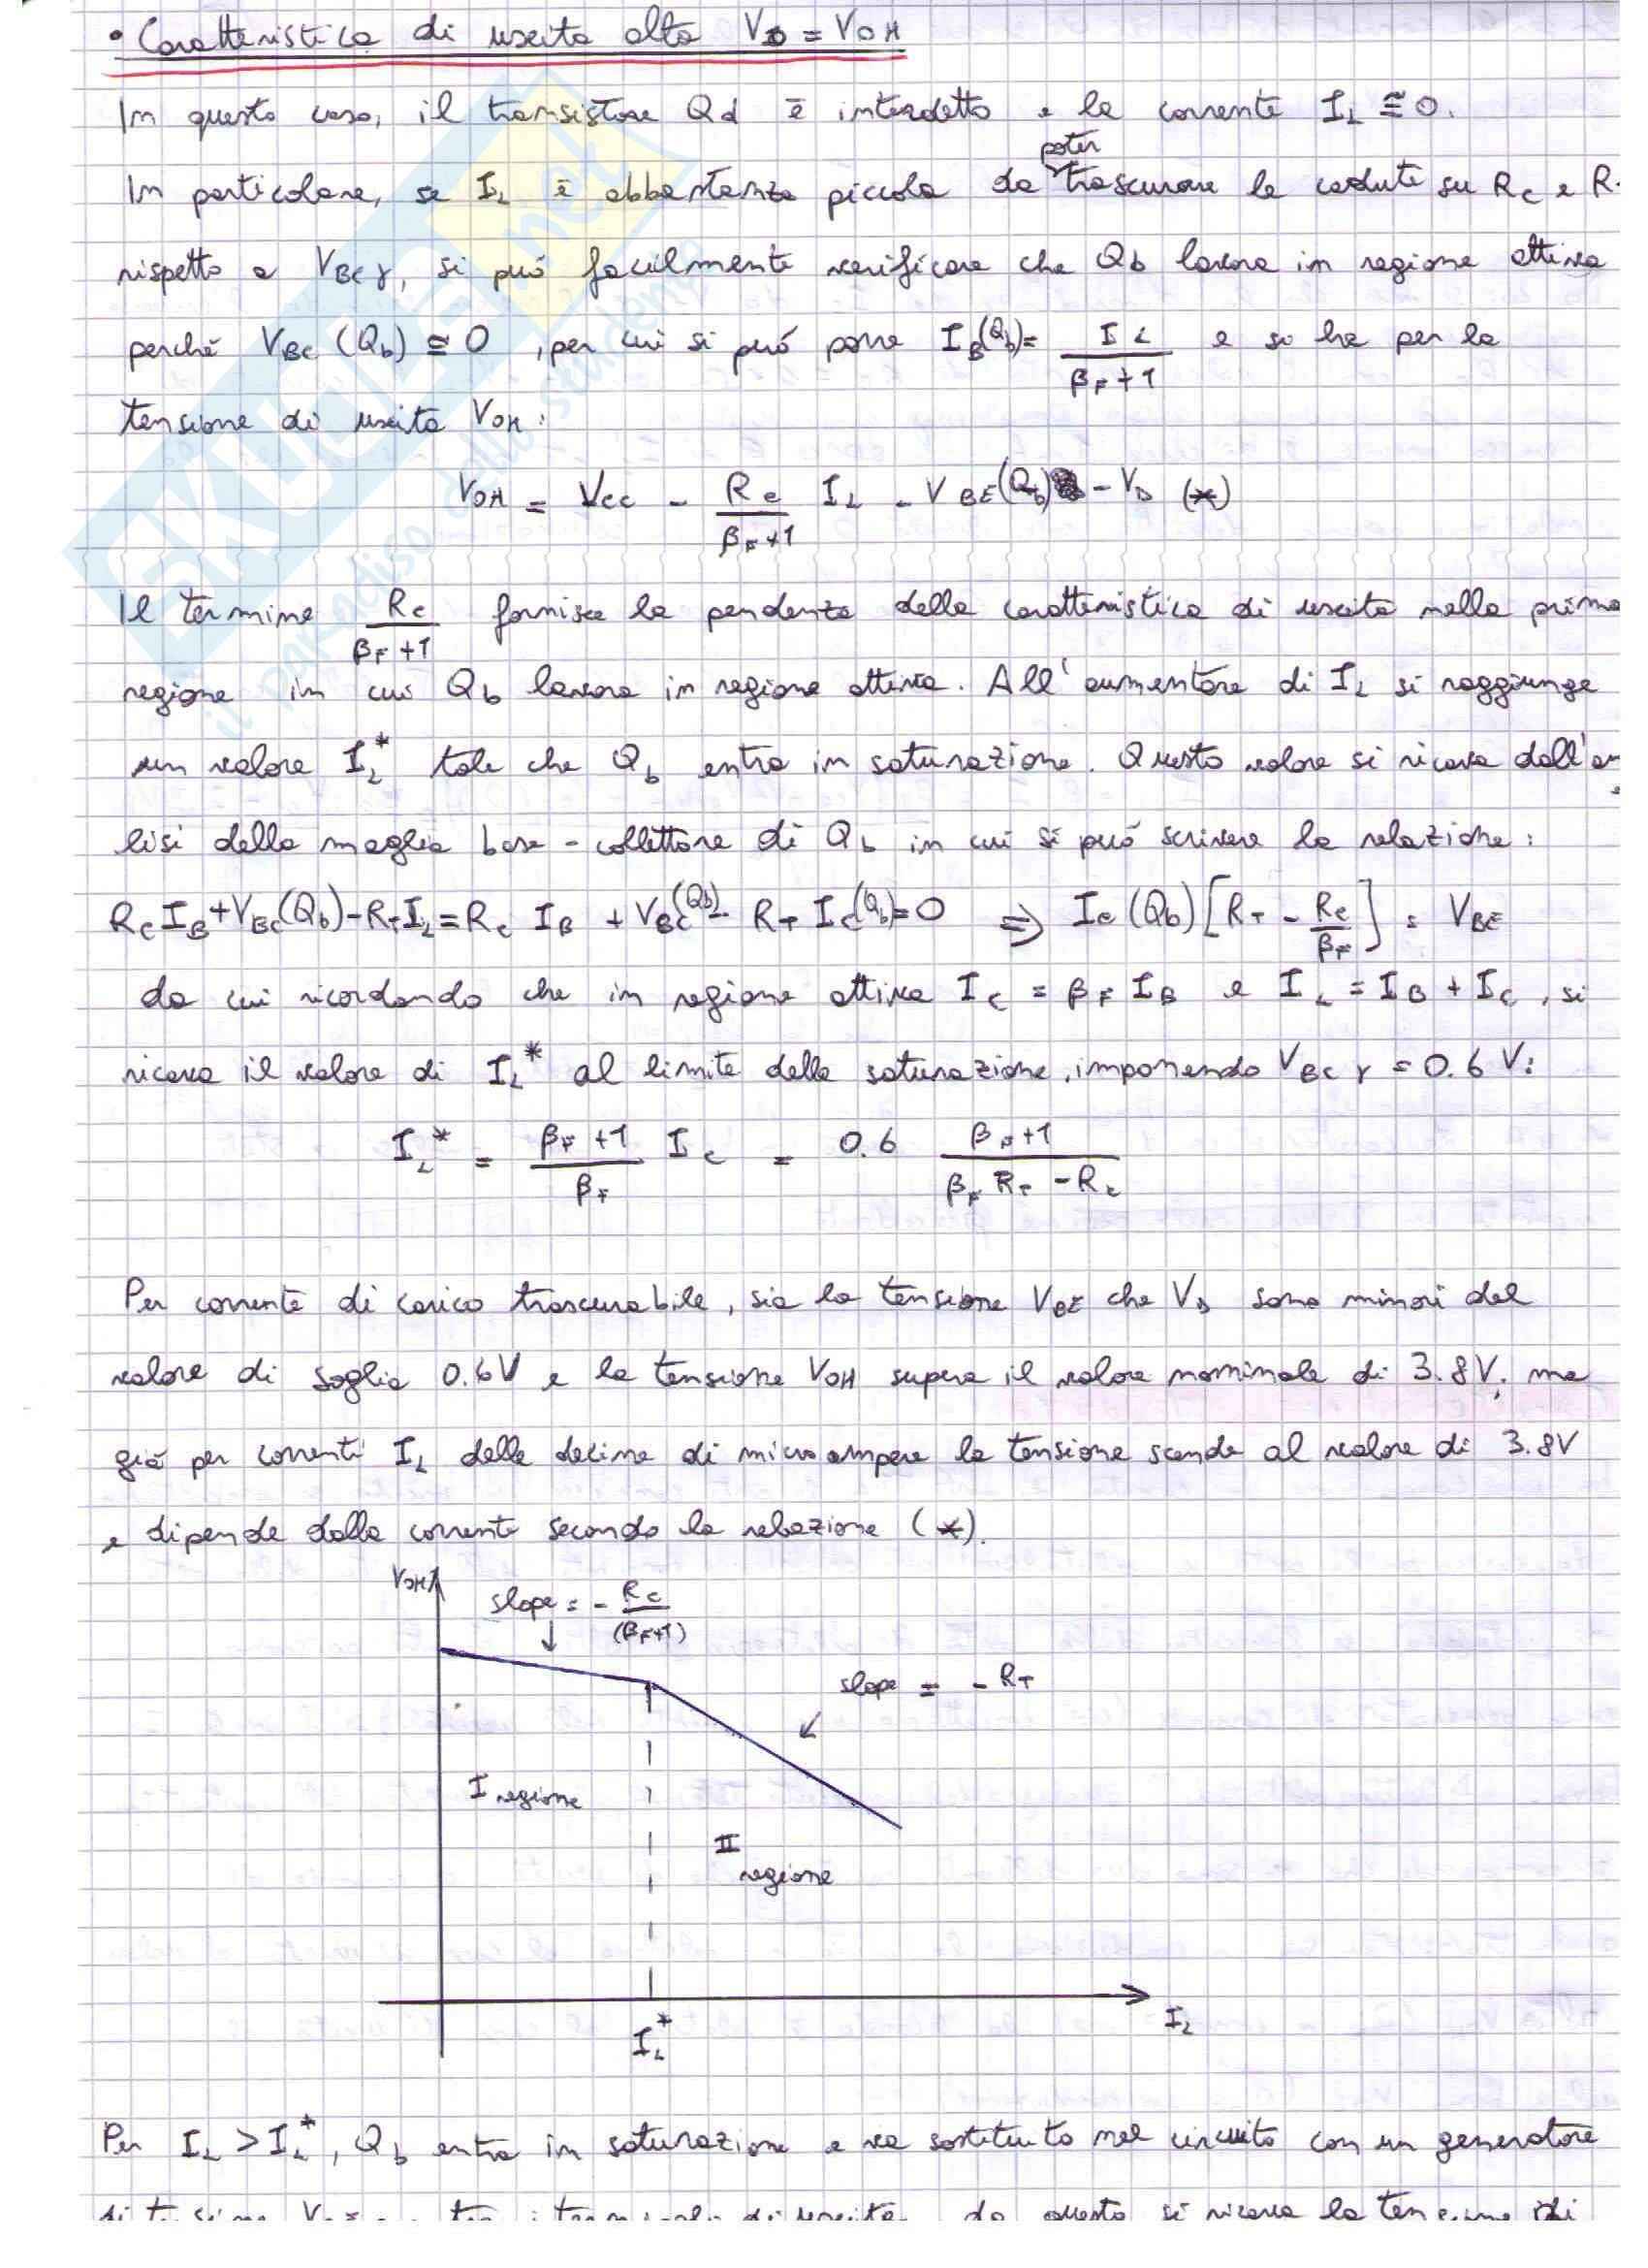 • Caratteristica di uscita alta V0 = VOH
In questo caso, il transistore Qd è interdetto e la corrente IL ≅ 0.
poter
In particolare, se IL è abbastanza piccola da trascurare le cadute su RC e R
rispetto a VBCγ, si può facilmente verificare che Qb lavora in regione attiva
perché VBC (Qb) ≅ 0, per cui si può porre IB(Qb) = IL / (βF+1) e si ha per la
tensione di uscita VOH:
VOH = VCC - RC/(βF+1) IL - VBE(Qb) - VD (*)
Il termine RC/(βF+1) fornisce la pendenza della caratteristica di uscita nella prima
regione in cui Qb lavora in regione attiva. All'aumentare di IL si raggiunge
un valore IL* tale che Qb entra in saturazione. Questo valore si ricava dall'an
lisi della maglia base-collettore di Qb in cui si può scrivere la relazione:
RC IB + VBC(Qb) - RT IL = RC IB + VBC(Qb) - RT IC(Qb) = 0 ⇒ IC (Qb) [RT - RC/βF] = VBE
da cui ricordando che in regione attiva IC = βF IB e IL = IB + IC, si
ricava il valore di IL* al limite della saturazione, imponendo VBCγ = 0.6 V:
IL* = (βF+1)/βF IC = 0.6 (βF+1)/(βF RT - RC)
Per corrente di carico trascurabile, sia la tensione VBE che VD sono minori del
valore di soglia 0.6V e la tensione VOH supera il valore nominale di 3.8V, ma
già per correnti IL delle decine di microampere la tensione scende al valore di 3.8V
e dipende dalla corrente secondo la relazione (*).
VOH
slope = - RC/(βF+1)
slope = - RT
I regione
II regione
IL*
IL
Per IL > IL*, Qb entra in saturazione e va sostituito nel circuito con un generatore
di tensione di uscita da questo si ricava la tensione di